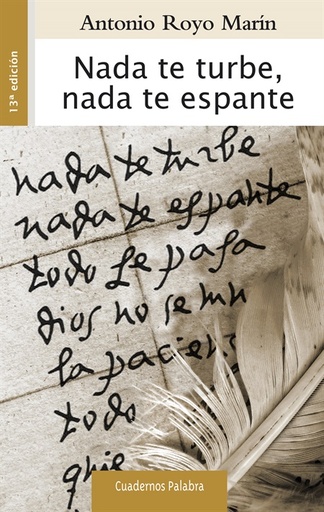 Antonio Royo Marín
13ª edición
Nada te turbe,
nada te espante
nada te turbe
nada te espante
todo se pasa
dios no se mu
la pacienc
todo
quie
Cuadernos Palabra